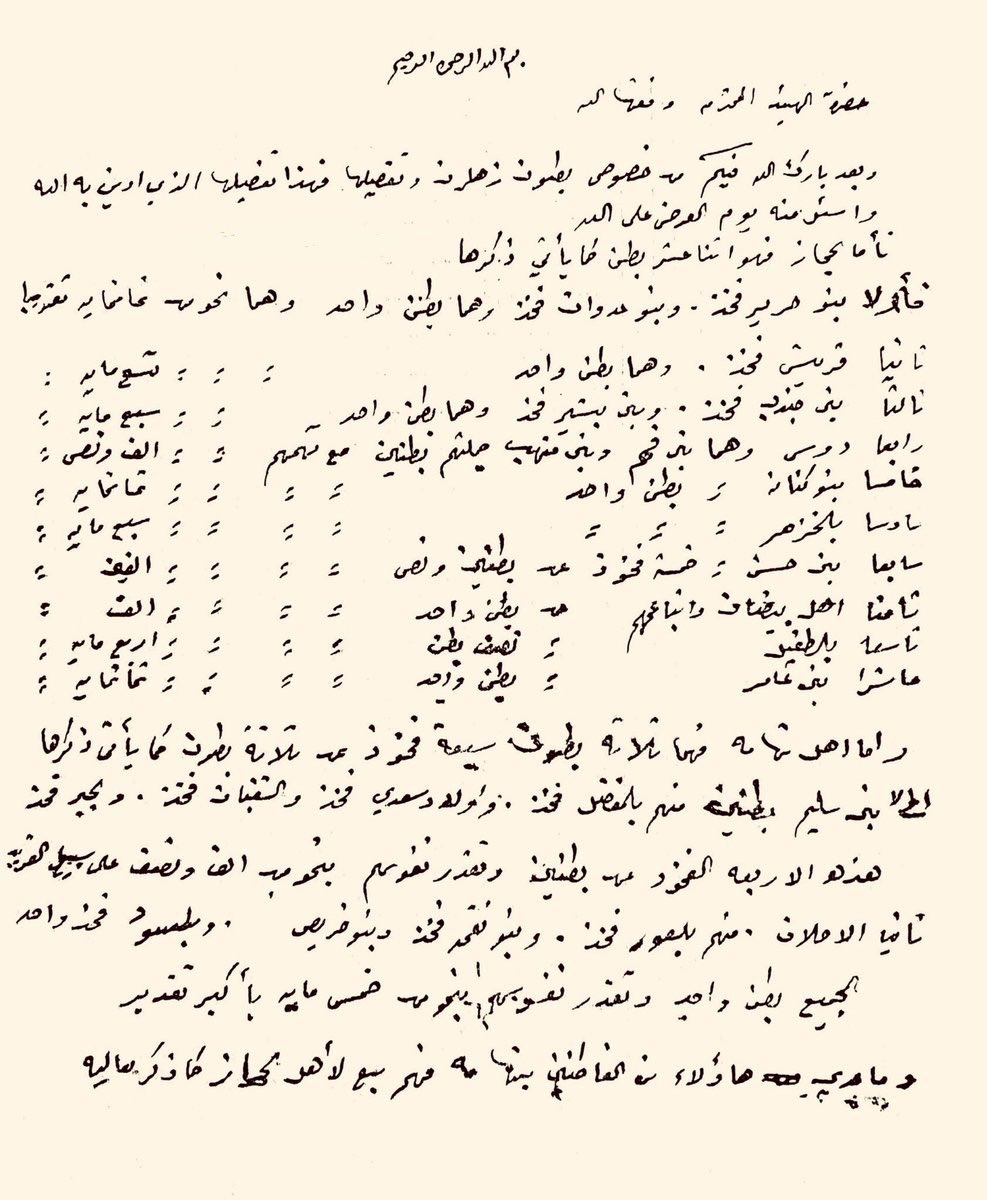 بسم الله الرحمن الرحيم
حضرة الهيئه المحترمه وفقها الله
وبعد بارك الله فيكم من خصوص بطون زهران وتفصيلها فهذا تفصيلها الذي ادين به الله
واسئل منه يوم العرض على الله
فأما الحجاز فهو اثنا عشر بطن كما يأتي ذكرها
فأولا بنو حرير فخذ . وبنو عدوان فخذ وهما بطن واحد وهما نحو من ثمانمايه تقريبا
ثانيا قريش فخذ . وهما بطن واحد = = = = تسع مايه =
ثالثا بني جندب فخذ . وبني بشير فخذ وهما بطن واحد = = سبع مايه =
رابعا دوس وهما بني فهم وبني منهب جملتهم بطنين مع تهمهم = = الف ونص =
خامسا بنو كنانه = بطن واحد = = = = ثمانمايه =
سادسا بالخزمر = = = = = = = سبع مايه =
سابعا بني حسن = خمسة فخوذ عن بطنين ونص = = = = الفين =
ثامنا اهل بيضان واتباعهم عن بطن واحد = = = = الف =
تاسعا بالطفيل = نصف بطن = = = = اربع مايه =
عاشرا بني عامر = بطن واحد = = = = ثمانمايه =
واما اهل تهامه فهما ثلاثة بطون سبعة فخوذ عن ثلاثة بطون كما يأتي ذكرها
اولا بني سليم بطنين منهم بالمفضل فخذ . واولاد سعدي فخذ والشغبان فخذ . وبجير فخذ
هذه الاربعه الفخوذ عن بطنين وتقدر نفوسهم بنحو من الف ونصف على سبيل التقريب
ثانيا الاحلاف . منهم بلعور فخذ . وبنو نقمه فخذ وبنو خريص . وبطسود فخذ واحد
الجميع بطن واحد وتقدر نفوسهم بنحو من خمس مايه بأكبر تقدير
وما عدى هاؤلاء من القاطنين بتهامه فهم تبع لأهل الحجاز كما ذكر بعاليه